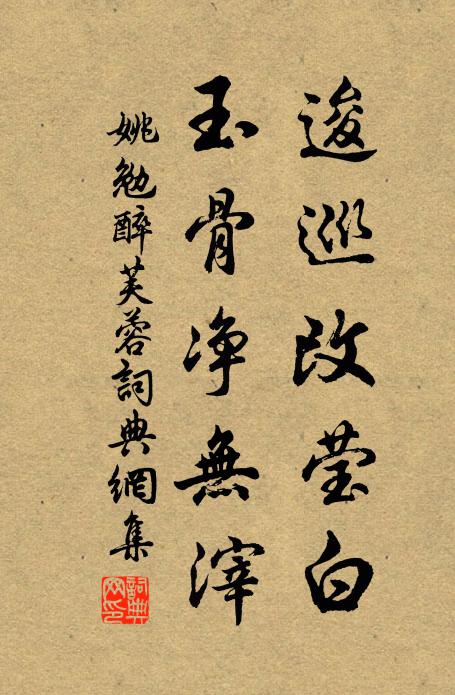 逡巡改莹白
玉骨净無滓
姚勉醉芙蓉詞典網集
詞典網印